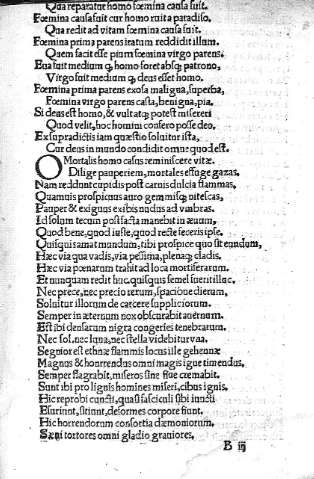 Qua reparatur homo fœmina causa fuit.
Fœmina causa fuit cur homo ruit a paradiso,
Qua redit ad vitam fœmina causa fuit.
Fœmina prima parens itatum reddidit illum.
Quem facit esse pium fœmina virgo parens.
Eua fuit medium q; homo foret absq; patrono,
Virgo fuit medium q; deus esset homo.
Fœmina prima parens exosa maligna, superba,
Fœmina virgo parens casta, benigna, pia.
Si deus est homo, & vultatq; potest misereri
Quod velit, hoc homini consero posse deo.
Ex supradictis iam quæstio soluitur ista,
Cur deus in mundo condidit omne quod est.
O Mortalis homo casus reminiscere vitæ.
Dilige pauperiem, mortales effuge gazas.
Nam reddunt cupidis post carnis dulcia flammas,
Quamuis prospicuus auro gemmisq; nitescas,
Pauper & exiguus exibis nudus ad vmbras.
Id solum tecum post facta manebit in æuum,
Quod bene, quod iuste, quod recte feceris ipse.
Quisquis amat mundum, tibi prospice quo sit eundum,
Hæc via qua vadis, via pessima, plenaq; cladis.
Hæc via pœnarum trahit ad loca mortiferarum.
Et nunquam redit huc, quisquis semel fuerit illuc,
Nec prece, nec precio rerum, spacioue dierum,
Soluitur illorum de carcere suppliciorum.
Semper in æternum nox obscurabit auernum.
Est ibi densarum nigra congeries tenebrarum.
Nec sol, nec luna, nec stella videbitur vna.
Segnior est ethnæ flammis locus ille gehennæ
Magnus & horrendus omni magis igne timendus,
Semper flagrabit, miseros sine fine cremabit.
Sunt ibi pro lignis homines miseri, cibus ignis.
Hic reprobi cuncti, quasi fasciculi sibi iuncti
Esuriunt, sitiunt, deformes corpore fiunt.
Hic horrendorum consortia dæmoniorum.
Sæui tortores omni gladio grauiores,
B iij